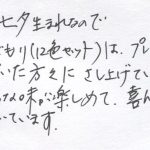 七夕生まれなので
もり(12色セット)は、プレ
いた方々にさし上げてい
な味が楽しめて、喜ん
ています。